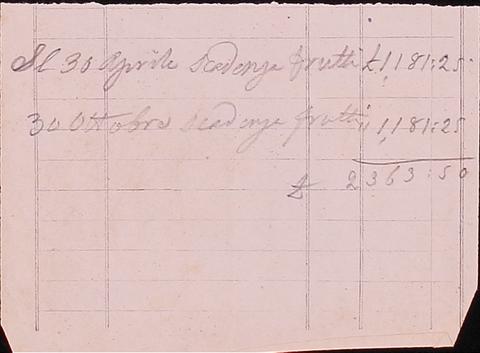 Al 30 Aprile Scadenza frutti £ 1,181:25
30 Ottobre Scadenza frutti " 1,181:25
£ 2363:50